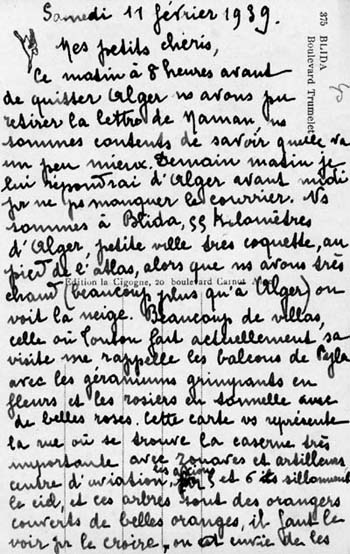 Samedi 11 février 1939.
375 BLIDA
Boulevard Trumelet
Mes petits chéris,
Ce matin à 8 heures avant
de quitter Alger ns avons pu
retirer la lettre de Maman ns
sommes contents de savoir quelle va
un peu mieux. Demain matin je
lui répondrai d'Alger avant midi
pr ne ps manquer le courrier. Ns
sommes à Blida, 55 kilomètres
d'Alger petite ville très coquette, au
pied de l'atlas, alors que ns avons très
Edition la Cigogne, 20 boulevard Carnot
chaud (beaucoup plus qu'à Alger) on
voit la neige. Beaucoup de villas,
celle où Tonton fait actuellement sa
visite me rappelle les balcons de
avec les géraniums grimpants en
fleurs et les rosiers en tonnelle avec
de belles roses. Cette carte vs représente
la rue où se trouve la caserne très
importante avec zouaves et artilleurs
centre d'aviation, les avions et sillonnent
le ciel, et ces arbres sont des orangers
couverts de belles oranges, il faut le
voir pr le croire, on envie de les